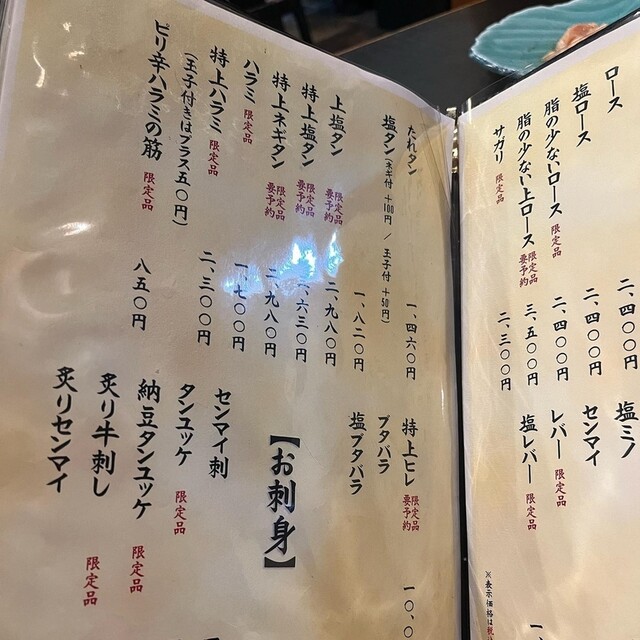 ロース 二、四〇〇円
塩ロース 二、四〇〇円
脂の少ないロース 限定品 二、四〇〇円
脂の少ない上ロース 限定品 要予約 三、五〇〇円
サガリ 限定品 二、三〇〇円
塩ミノ
センマイ
レバー 限定品
塩レバー 限定品
※表示価格は税
たれタン 一、四六〇円
塩タン(ネギ付 +100円 / 玉子付 +50円) 一、八二〇円
上塩タン 限定品 要予約 二、九八〇円
特上塩タン 限定品 要予約 、六三〇円
特上ネギタン 限定品 要予約 二、九八〇円
ハラミ 限定品 一、七〇〇円
特上ハラミ 限定品 二、三〇〇円
(玉子付きはプラス五〇円)
ピリ辛ハラミの筋 限定品 八五〇円
特上ヒレ 限定品 要予約 一〇、〇
ブタバラ
塩ブタバラ
【お刺身】
センマイ刺
タンユッケ 限定品
納豆タンユッケ 限定品
炙り牛刺し 限定品
炙りセンマイ